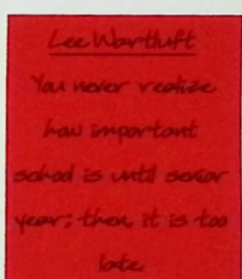 Lee Wartluft
You never realize
how important
school is until senior
year; then, it is too
late